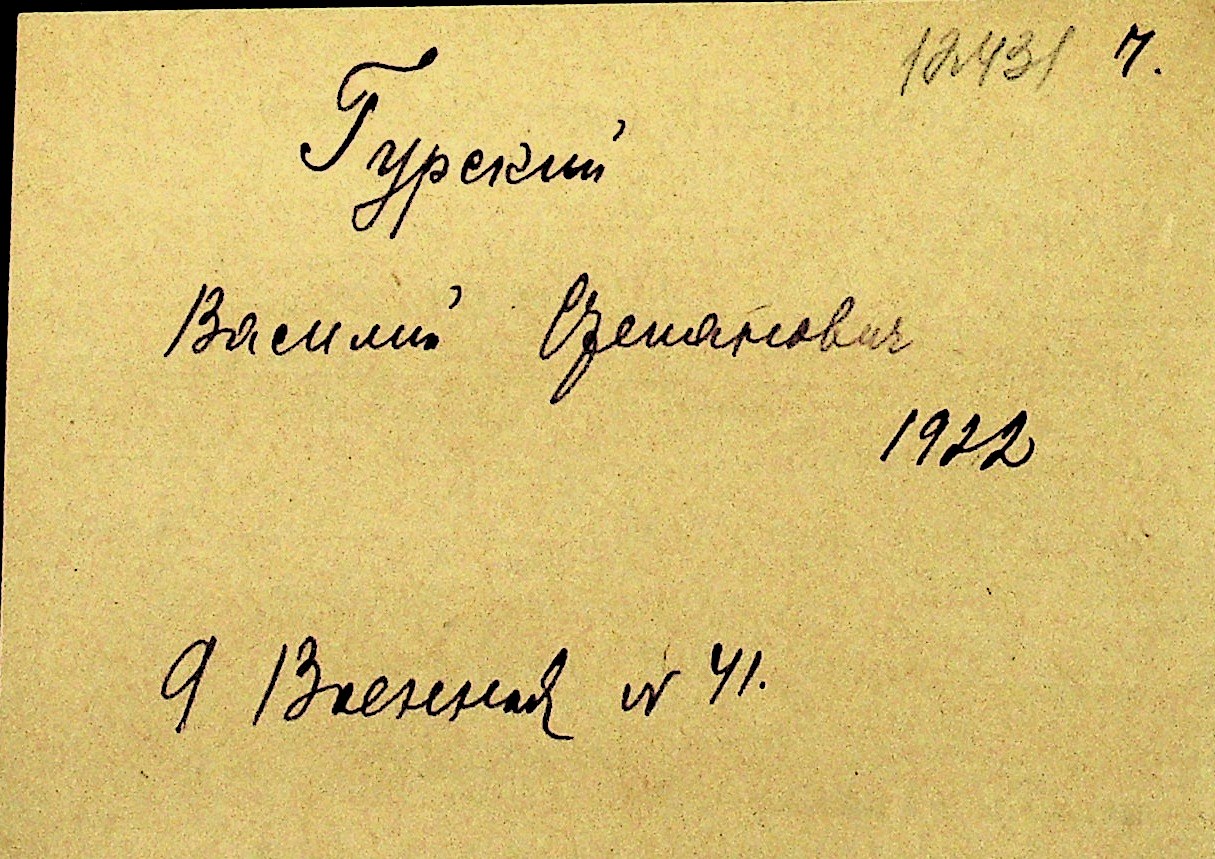 12431 7.
Гурский
Василий Степанович
1922
9 Военная № 41.